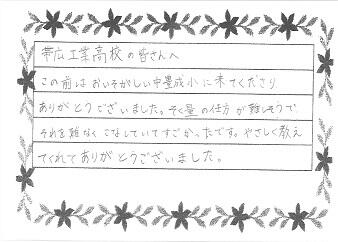 帯広工業高校の皆さんへ
この前はおいそがしい中豊成小に来てくださり
ありがとうございました。そく量の仕方が難しそうで、
それを難なくこなしていてすごかったです。やさしく教え
てくれてありがとうございました。